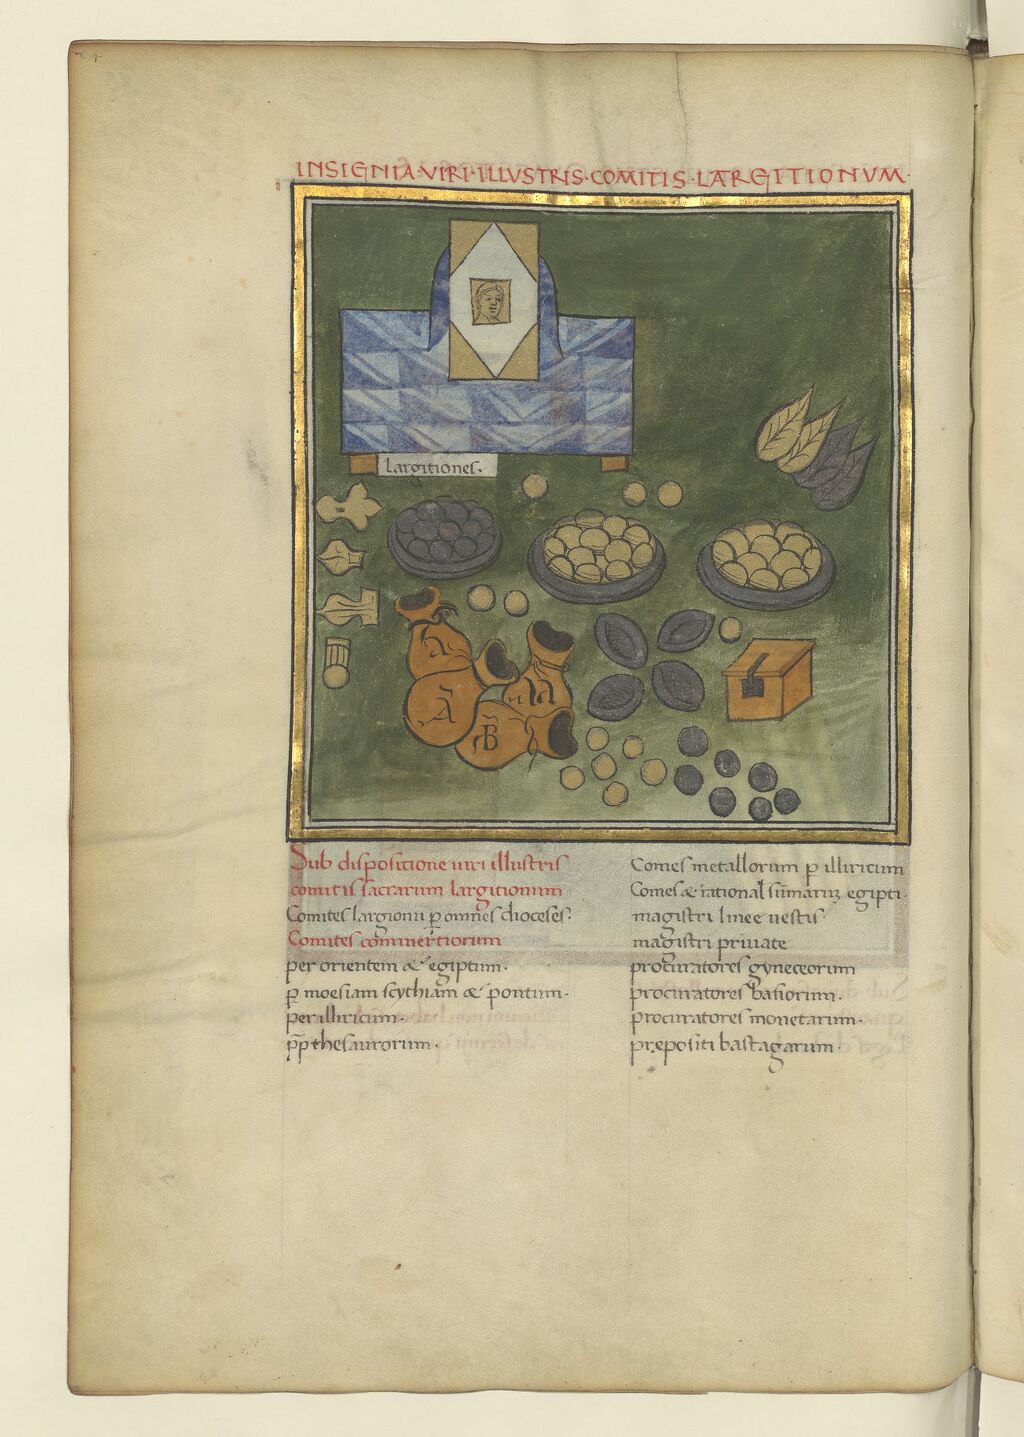 INSIGNIA·VIRI·ILLVSTRIS·COMITIS·LARGITIONVM·
Largitiones.
Ā
B̄
Sub dispositione uiri illustris
comitis sacrarum largitionum
Comites largionū ꝑ omnes dioceses·
Comites commertiorum
per orientem & egiptum·
ꝑ moesiam scythiam & pontum·
per illiricum·
pp̄ thesaurorum·
Comes metallorum ꝑ illiricum
Comes & rational egipti·
magistri linee uestis·
magistri priuate
procuratores gyneceorum
procuratores bafiorum·
procuratores monetarum·
prepositi bastagarum·